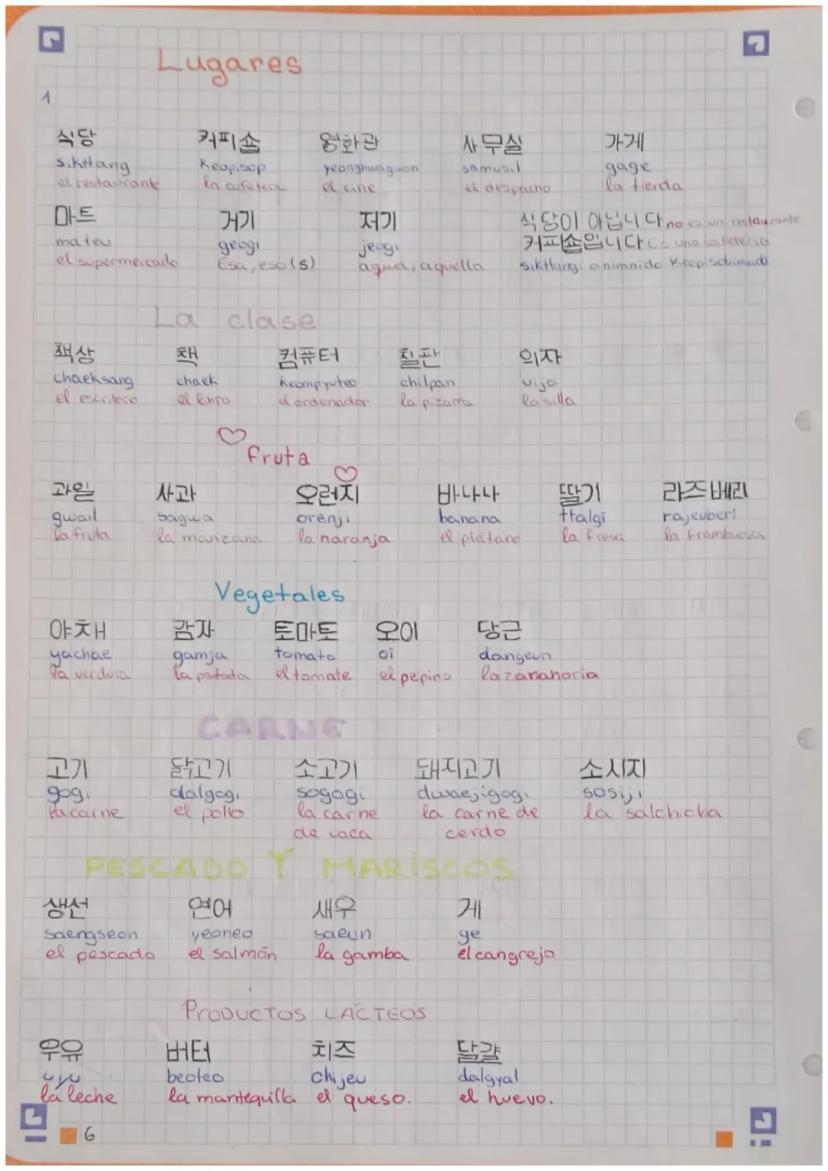 Lugares
1
식당 커피숍 영화관 사무실 가게
sikttang keopisop yeonghwagwan samusil gage
el restaurante la cafetería el cine el despacho la tienda
마트 거기 저기 식당이 아닙니다 no es un restaurante
mateu geogi jeogi 커피숍입니다 Es una cafetería
el supermercado Esa, eso(s) aquel, aquella
La clase
책상 책 컴퓨터 칠판 의자
chaeksang chaek keompyuteo chilpan uija
el escritorio el libro el ordenador la pizarra la silla
fruta
과일 사과 오런지 바나나 딸기 라즈베리
gwail sagwa orenji banana ttalgi rajeuberi
la fruta la manzana la naranja el plátano la fresa la frambuesa
Vegetales
야채 감자 토마토 오이 당근
yachae gamja tomato oi dangeun
la verdura la patata el tomate el pepino la zanahoria
CARNE
고기 닭고기 소고기 돼지고기 소시지
gogi dalgogi sogogi dwaejigogi sosiji
la carne el pollo la carne la carne de la salchicha
de vaca cerdo
PESCADO Y MARISCOS
생선 연어 새우 게
saengseon yeoneo saeun ge
el pescado el salmón la gamba el cangrejo
PRODUCTOS LÁCTEOS
우유 버터 치즈 달걀
uyu beoteo chijeu dalgyal
la leche la mantequilla el queso. el huevo.
6